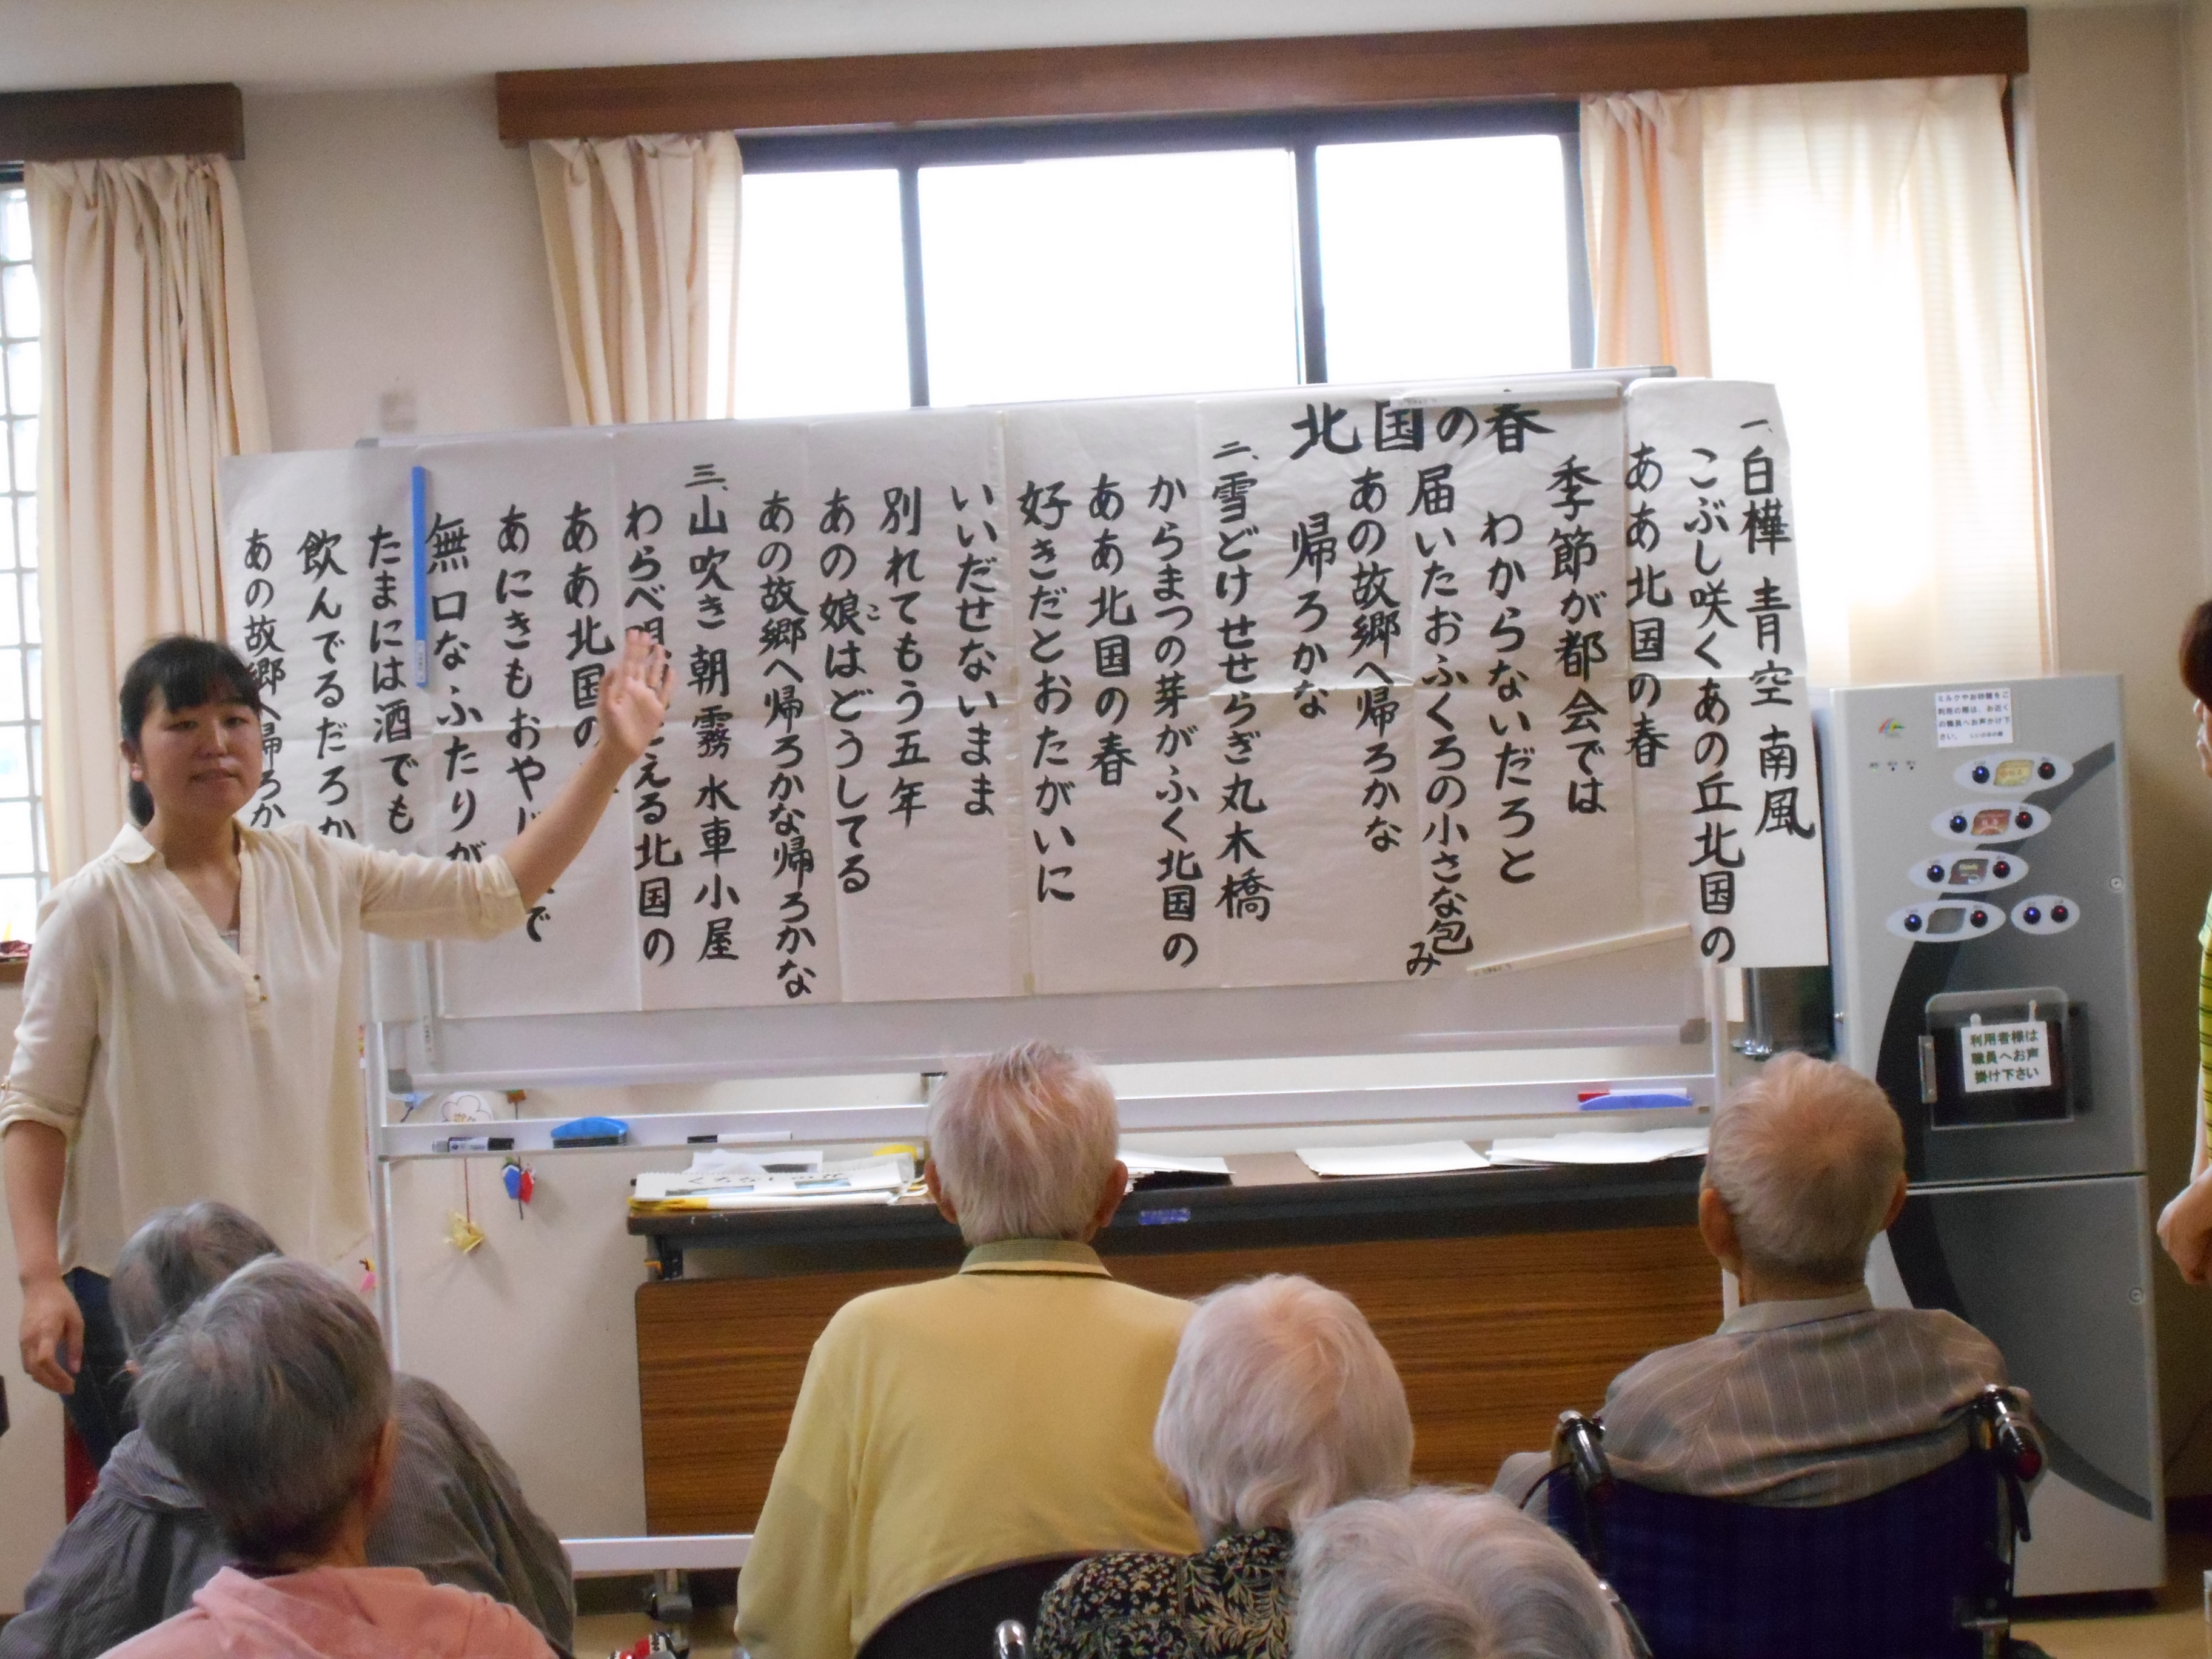 北国の春
一、白樺 青空 南風
こぶし咲くあの丘北国の
ああ北国の春
季節が都会では
わからないだろと
届いたおふくろの小さな包み
あの故郷へ帰ろかな
帰ろかな
二、雪どけせせらぎ丸木橋
からまつの芽がふく北国の
ああ北国の春
好きだとおたがいに
いいだせないまま
別れてもう五年
あの娘はどうしてる
こ
あの故郷へ帰ろかな帰ろかな
三、山吹き 朝霧 水車小屋
わらべ える北国の
ああ北国の
あにきもおやじ で
無口なふたりが
たまには酒でも
飲んでるだろか
あの故郷へ帰ろか
利用者様は
職員へお声
掛け下さい